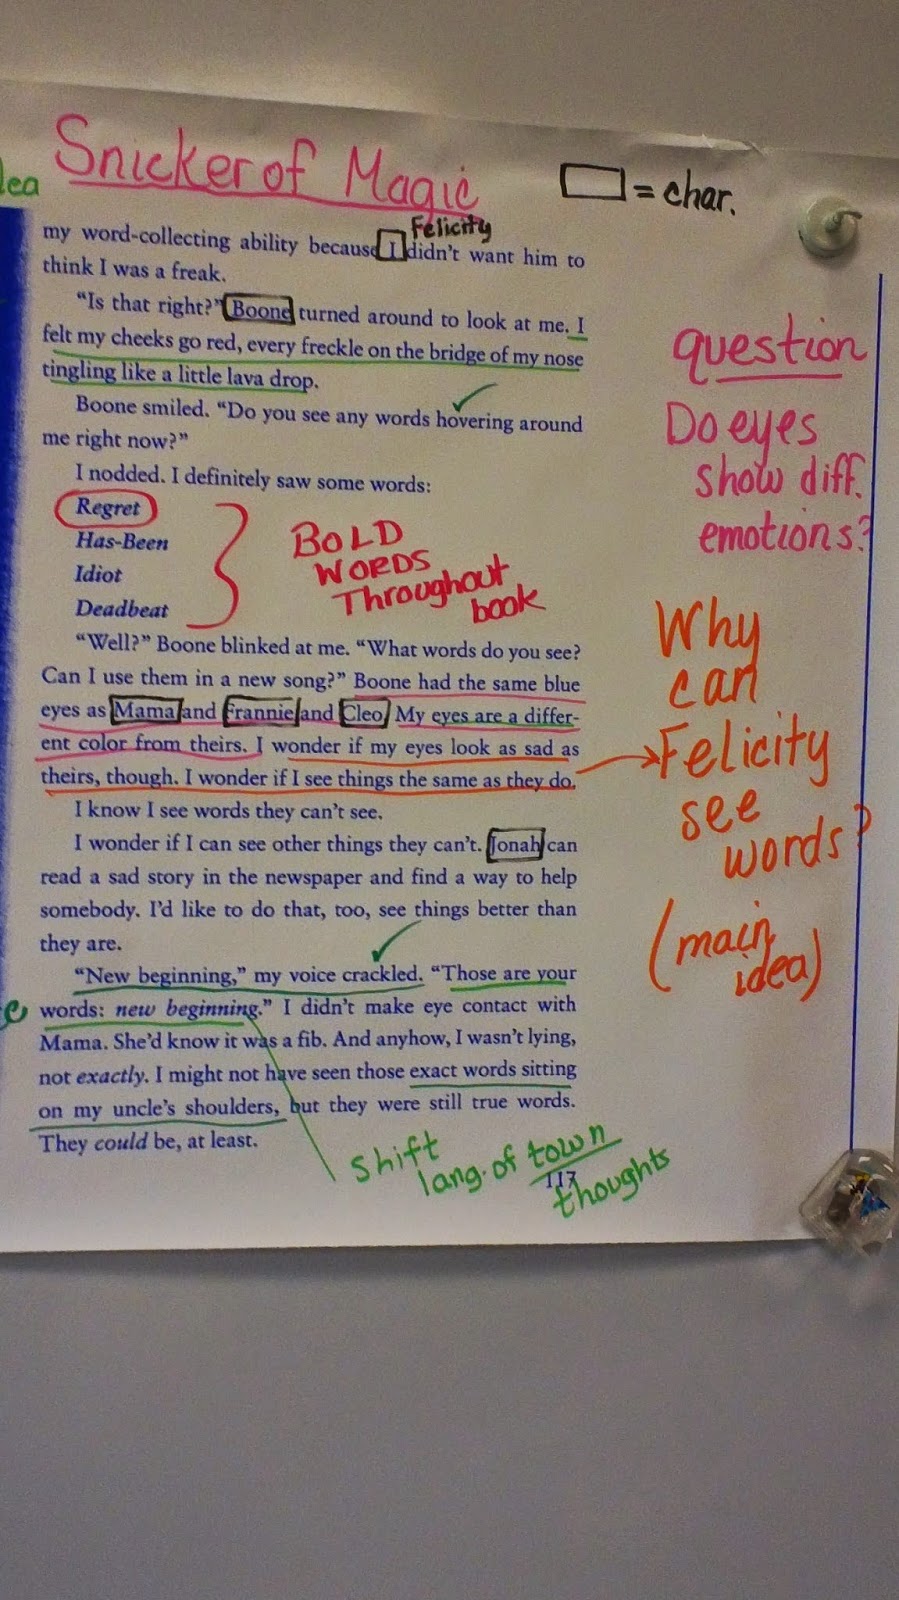 Snicker of Magic
= char.
Felicity
my word-collecting ability because I didn't want him to
think I was a freak.
"Is that right?" Boone turned around to look at me. I
felt my cheeks go red, every freckle on the bridge of my nose
tingling like a little lava drop.
Boone smiled. "Do you see any words hovering around
me right now?"
I nodded. I definitely saw some words:
Regret
Has-Been
Idiot
Deadbeat
BOLD
WORDS
Throughout
book
"Well?" Boone blinked at me. "What words do you see?
Can I use them in a new song?" Boone had the same blue
eyes as Mama and Frannie and Cleo. My eyes are a differ-
ent color from theirs. I wonder if my eyes look as sad as
theirs, though. I wonder if I see things the same as they do.
I know I see words they can't see.
I wonder if I can see other things they can't. Jonah can
read a sad story in the newspaper and find a way to help
somebody. I'd like to do that, too, see things better than
they are.
"New beginning," my voice crackled. "Those are your
words: new beginning." I didn't make eye contact with
Mama. She'd know it was a fib. And anyhow, I wasn't lying,
not exactly. I might not have seen those exact words sitting
on my uncle's shoulders, but they were still true words.
They could be, at least.
shift
lang. of town
117
thoughts
question
Do eyes
show diff.
emotions?
Why
can
Felicity
see
words?
(main
idea)